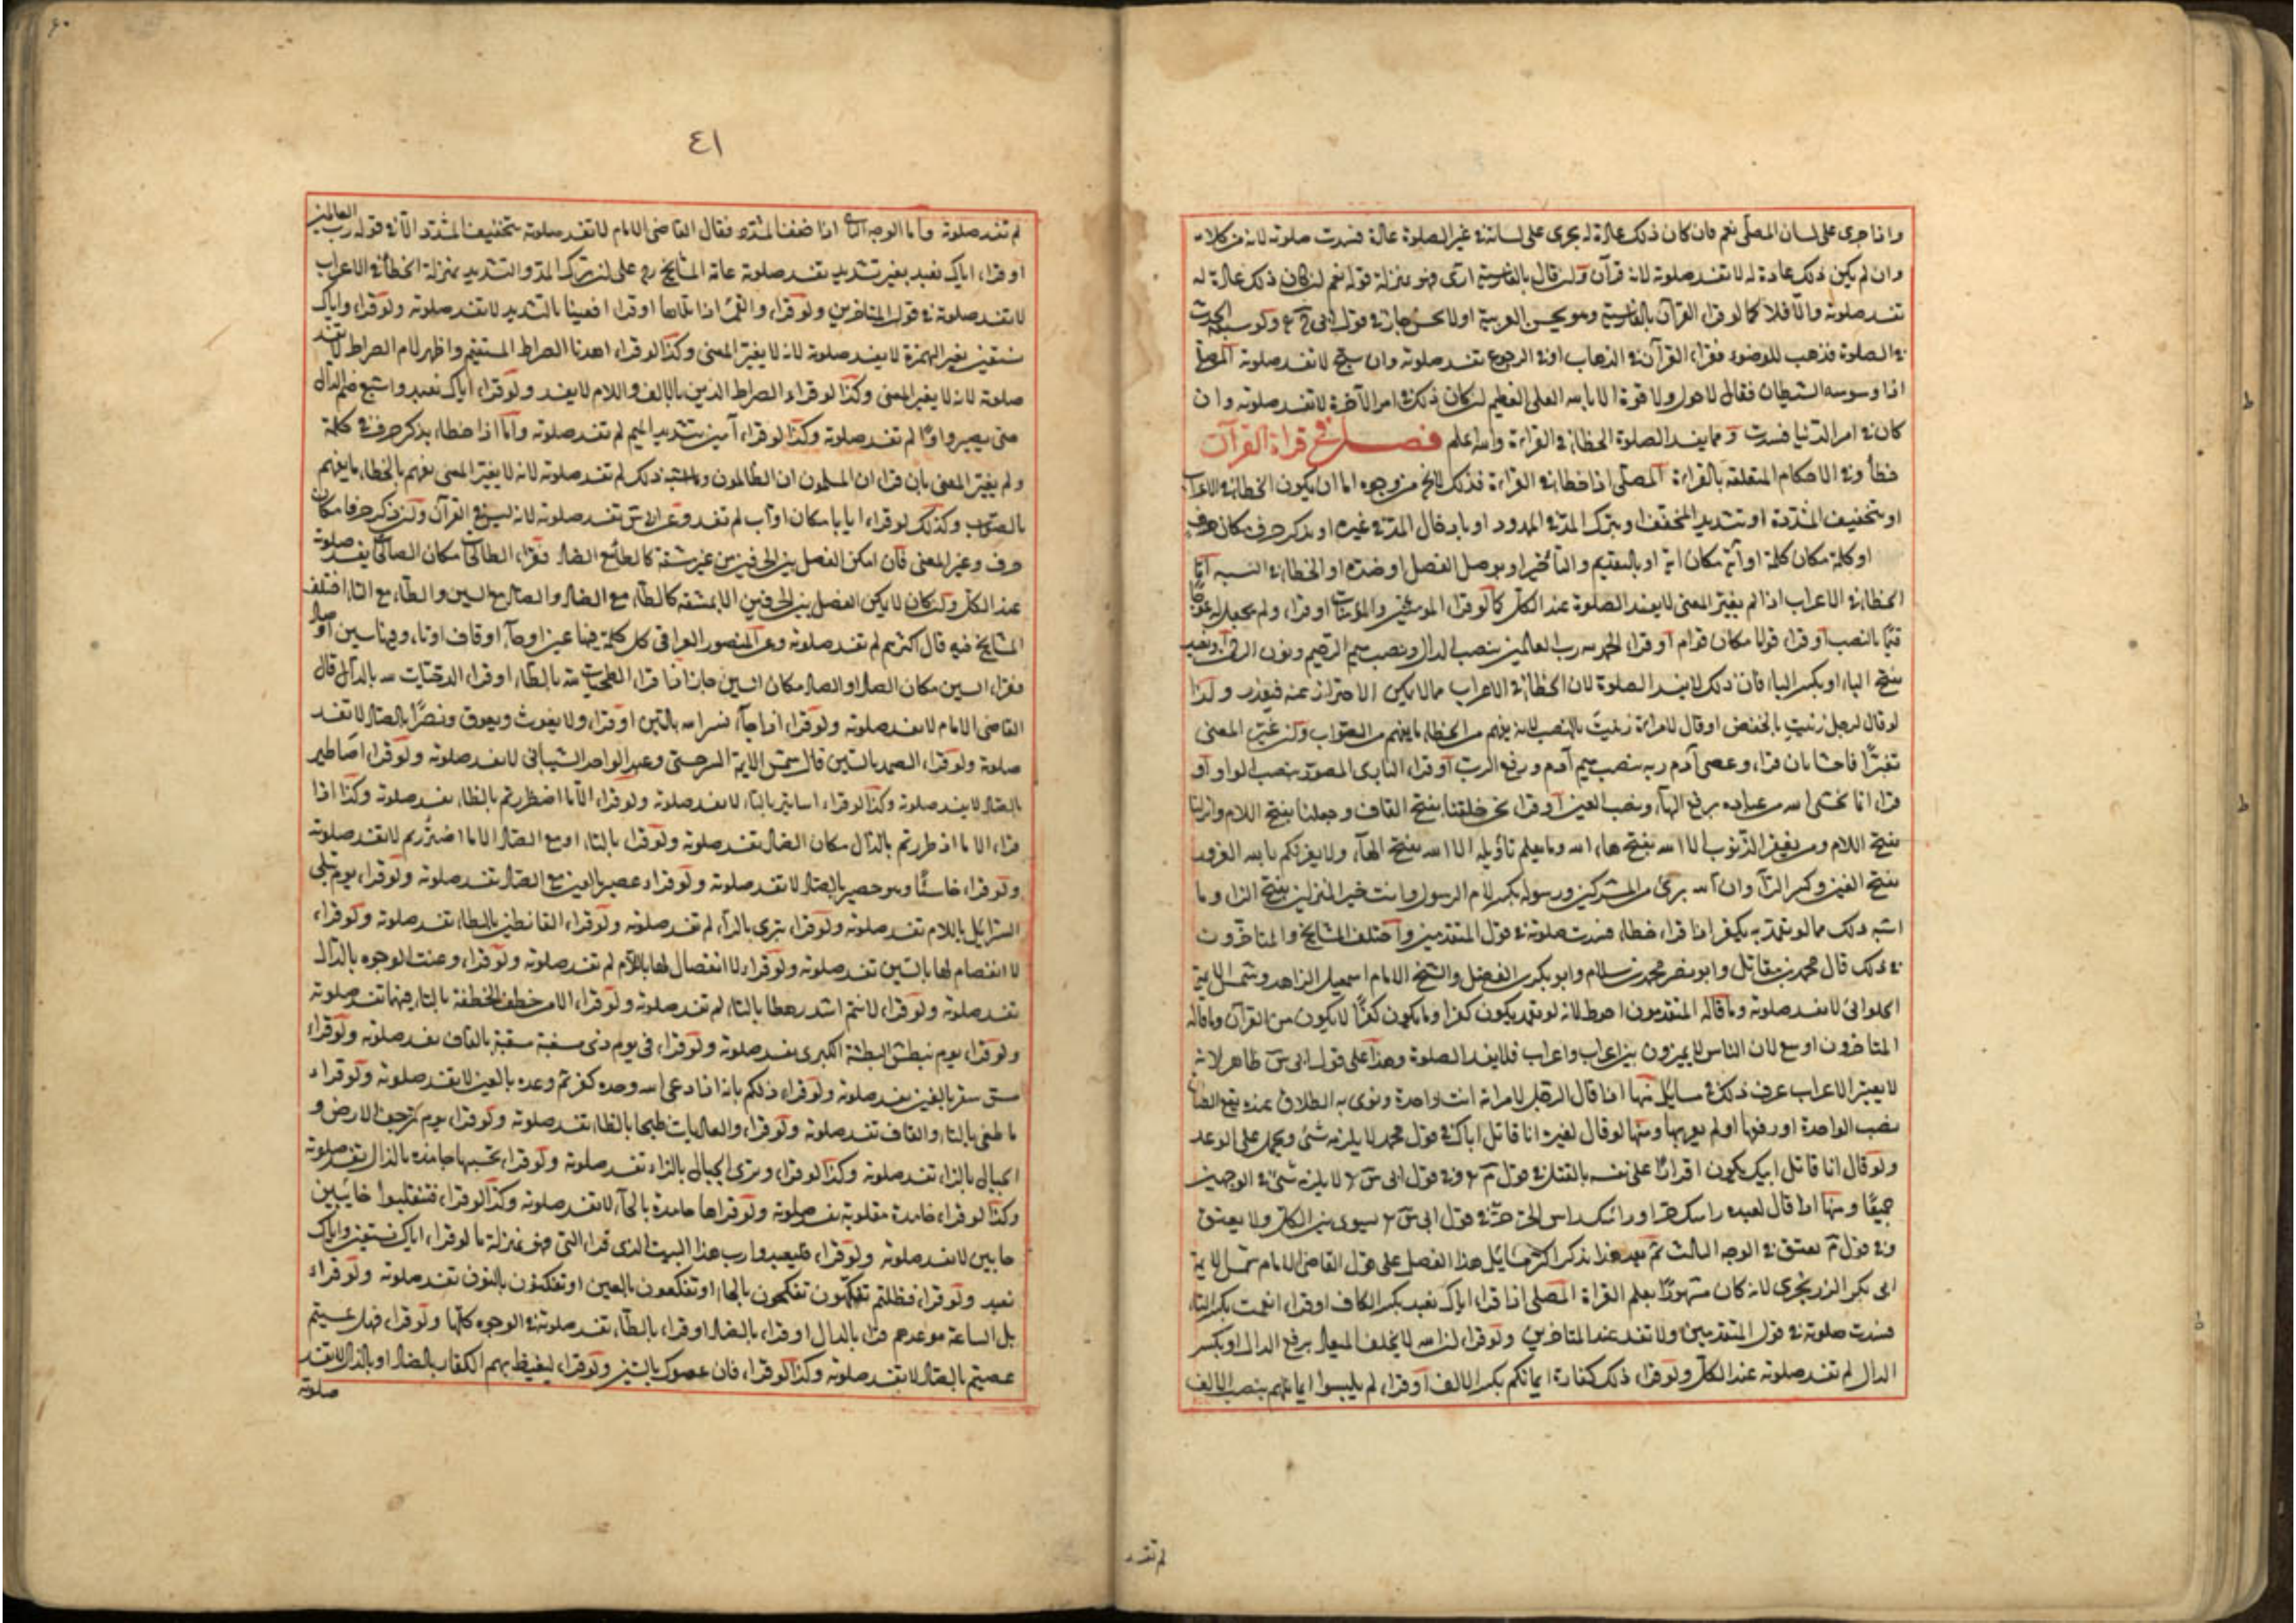 واذا جرى على لسان المصلى نعم فان كان ذلك عادة له يجرى على لسانه فى غير الصلوة عادة فسدت صلوته لانه من كلامه
وان لم يكن ذلك عادة له لا تفسد صلوته لانه قرآن ولو قال بالفارسية ارى فهو بمنزلة قوله نعم ان كان ذلك عادة له
تفسد صلوته والا فلا كما لو قراء القرآن بالفارسية وهو يحسن العربية اولا يحسن جاز فى قول ابى ولو سبقه الحدث
فى الصلوة فذهب للوضوء فقراء القرآن فى الذهاب او فى الرجوع تفسد صلوته وان سبح لا تفسد صلوته المصلى
اذا وسوسه الشيطان فقال لا حول ولا قوة الا بالله العلى العظيم ان كان ذلك فى امر الآخرة لا تفسد صلوته وان
كان فى امر الدنيا فسدت ومما يفسد الصلوة الخطأ فى القراءة والله اعلم فصل فى قراة القرآن
خطأ وفى الاحكام المتعلقة بالقراءة المصلى اذا خطا فى القراءة فذلك لا يخ من وجوه اما ان يكون الخطا فى الاعراب
او بتخفيف المشددة او تشديد المخفف او بترك المدة فى الممدود او بادخال المدة فى غيره او بذكر حرف مكان حرف
او كلمة مكان كلمة او آية مكان اية او بالتقديم والتأخير او بوصل الفصل او ضده او الخطا فى النسبه اما
الخطا فى الاعراب اذا لم يغير المعنى لا يفسد الصلوة عند الكل كما لو قراء المومنين والمؤمنات او قراء ولم يجعل له عوجا
قيما بالنصب او قراء قوما مكان قوام او قراء الحمد لله رب العالمين بنصب الدال ونصب ميم الرحيم ونون الرحمن ونعبد
بفتح الباء او بكسر الباء فان ذلك لا يفسد الصلوة لان الخطا فى الاعراب مما لا يمكن الاحتراز عنه فيعذر ولهذا
لو قال لرجل زنيت بالخفض او قال لامراءة زنيت بالنصب لانه يفهم من الخطاء ما يفهم من الصواب ولئن غير المعنى
تغيرا فاحشا بان قراء وعصى آدم ربه بنصب ميم آدم ورفع الرب او قراء البارى المصور بنصب الواو او
قراء انما يخشى الله من عباده برفع الهاء ونصب العين او قراء نحن خلقنا بفتح القاف وجعلنا بفتح اللام وانزلنا
بفتح اللام ومن يغفر الذنوب الا الله بفتح هاء الله وما يعلم تاويله الا الله بفتح الهاء ولا يغرنكم بالله الغرور
بفتح الغين وكسر الراء وان الله برئ من المشركين ورسوله بكسر لام الرسول وانت خير المنزلين بفتح الزاء وما
اشبه ذلك مما لو تعمد به يكفر اذا قراء خطاء فسدت صلوته فى قول المتقدمين واختلف المشايخ والمتاخرون
فى ذلك قال محمد بن مقاتل وابو نصر محمد بن سلام وابو بكر بن الفضل والشيخ الامام اسمعيل الزاهد وشمس الايمة
الحلوانى لا تفسد صلوته وما قاله المتقدمون احوط لانه لو تعمد يكون كفرا وما يكون كفرا لا يكون من القرآن وما قاله
المتاخرون اوسع لان الناس لا يميزون بين اعراب واعراب فلا يفسد الصلوة وهذا على قول ابى س ظاهر لانه
لا يعتبر الاعراب عرف ذلك فى مسايل منها اذا قال الرجل لامراته انت واحدة ونوى به الطلاق عنده يقع الطلاق
نصب الواحدة او رفعها او لم يعربها ومنها لو قال لغيره انا قاتل اباك فى قول محمد لا يلزمه شئ ويحمل على الوعد
ولو قال انا قاتل ابيك يكون اقرارا على نفسه بالقتل فى قول م وفى قول ابى س لا يلزمه شئ فى الوجهين
جميعا ومنها اذا قال لعبده راسك حر او راسك راس الحر فى قول ابى س يسوى بين الكل ولا يعتق
وفى قول م يعتق فى الوجه الثالث ثم بعد هذا نذكر اكثر مسايل هذا الفصل على قول القاضى الامام شمس الايمة
ابى بكر الزرنجرى لانه كان مشهورا بعلم القراة المصلى اذا قراء اياك نعبد بكسر الكاف او قراء انعمت بكسر التاء
فسدت صلوته فى قول المتقدمين ولا تفسد عند المتاخرين ولو قراء ان الله لا يخلف الميعاد برفع الدال او بكسر
الدال لم تفسد صلوته عند الكل ولو قراء ذلك كفارة ايمانكم بكسر الالف او قراء لم يلبسوا ايمانهم بنصب الالف
لم تفسد
٤١
لم تفسد صلوته واما الوجه الثانى اذا خفف المشدد فقال القاضى الامام لا تفسد صلوته بتخفيف المشدد الا فى قوله رب العالمين
او قراء اياك نعبد بغير تشديد تفسد صلوته عامة المشايخ رح على ان ترك المد والتشديد بمنزلة الخطأ فى الاعراب
لا تفسد صلوته فى قول المتاخرين ولو قراء والقمر اذا تلاها او قراء افعيينا بالتشديد لا تفسد صلوته ولو قراء واياك
نستعين بغير الهمزة لا يفسد صلوته لانه لا يغير المعنى وكذا لو قراء اهدنا الصراط المستقيم واظهر لام الصراط لا تفسد
صلوته لانه لا يغير المعنى وكذا لو قراء الصراط الذين بالالف واللام لا يفسد ولو قراء اياك نعبد واشبع ضم الدال
حتى يصير واوا لم تفسد صلوته وكذا لو قراء آمين بتشديد الميم لم تفسد صلوته واما اذا خطاء بذكر حرف فى كلمة
ولم يغير المعنى بان قراء ان المسلمون ان الظالمون وما اشبه ذلك لم تفسد صلوته لانه لا يغير المعنى يفهم بالخطاء ما يفهم
بالصواب وكذلك لو قراء ايابا مكان اواب لم تفسد وعن ابى س تفسد صلوته لانه ليس فى القرآن ولئن ذكر حرفا مكان
حرف وغير المعنى فان امكن الفصل بين الحرفين من غير مشقة كالطاء مع الصاد فقراء الطالحات مكان الصالحات يفسد صلوته
عند الكل ولئن كان لا يمكن الفصل بين الحرفين الا بمشقة كالظاء مع الضاد والصاد مع السين والطاء مع التاء اختلف
المشايخ فيه قال اكثرهم لم تفسد صلوته وعن ابى منصور العراقى كل كلمة فيها عين او حاء او قاف او تاء وفيها سين او صاد
فقراء السين مكان الصاد او الصاد مكان السين جاز اذا قراء الطحيات لله بالطاء او قراء الدحيات لله بالدال قال
القاضى الامام لا تفسد صلوته ولو قراء اذا جاء نسر الله بالسين او قراء ولا يغوث ويعوق ونصرا بالصاد لا تفسد
صلوته ولو قراء السمد بالسين قال شمس الايمة السرخسى وعبد الواحد الشيبانى لا تفسد صلوته ولو قراء اصاطير
بالصاد لا يفسد صلوته وكذا لو قراء اساتير بالتاء لا تفسد صلوته ولو قراء الا ما اضطررتم بالظاء تفسد صلوته وكذا اذا
قراء الا ما اذطررتم بالذال مكان الضاد تفسد صلوته ولو قراء بالتاء او مع الضاد الا ما اضتررتم لا تفسد صلوته
ولو قراء خاسئا وهو حصير بالصاد لا تفسد صلوته ولو قراء عصير بالعين مع الصاد تفسد صلوته ولو قراء يوم تبلى
السرايل باللام تفسد صلوته ولو قراء تبرى بالراء لم تفسد صلوته ولو قراء القانطين بالطاء تفسد صلوته ولو قراء
لا انفصام لها بالسين تفسد صلوته ولو قراء لا انفصال لها باللام لم تفسد صلوته ولو قراء وعنت الوجوه بالدال
تفسد صلوته ولو قراء لانتم اشد رهطا بالتاء لم تفسد صلوته ولو قراء الا من خطف الخطفة بالتاء فيهما تفسد صلوته
ولو قراء يوم نبطش البطشة الكبرى تفسد صلوته ولو قراء فى يوم ذى مسغبة سقبة بالقاف تفسد صلوته ولو قراء
بالغين تفسد صلوته ولو قراء ذلكم بانه اذا دعى الله وحده كفرتم وعده بالعين لا تفسد صلوته ولو قراء
ما طغى بالتاء والقاف تفسد صلوته ولو قراء والعاديات ظبحا بالظاء تفسد صلوته ولو قراء يوم ترجف الارض و
الجبال بالزاء تفسد صلوته وكذا لو قراء وترى الجبال بالزاء تفسد صلوته ولو قراء تحسبها جامذه بالذال تفسد صلوته
وكذا لو قراء خامدة مقلوبة تفسد صلوته ولو قراها حامدة بالحاء لا تفسد صلوته وكذا لو قراء فتنقلبوا خايبين
حايبين لا تفسد صلوته ولو قراء فليعبدوا رب هذا البيت الذى قراء التى فهو بمنزلة ما لو قراء اياك نستعين واياك
نعبد ولو قراء فظلتم تفكهون تفكحون بالحاء او تفكعون بالعين او تفكنون بالنون تفسد صلوته ولو قراء
بل الساعة موعدهم قراء بالدال او قراء بالضاد او قراء بالطاء تفسد صلوته فى الوجوه كلها ولو قراء فهل عسيتم
عصيتم بالصاد لا تفسد صلوته وكذا لو قراء فان عصوك بالسين ولو قراء ليغيظ بهم الكفار بالضاد او بالذال لا تفسد
صلوته